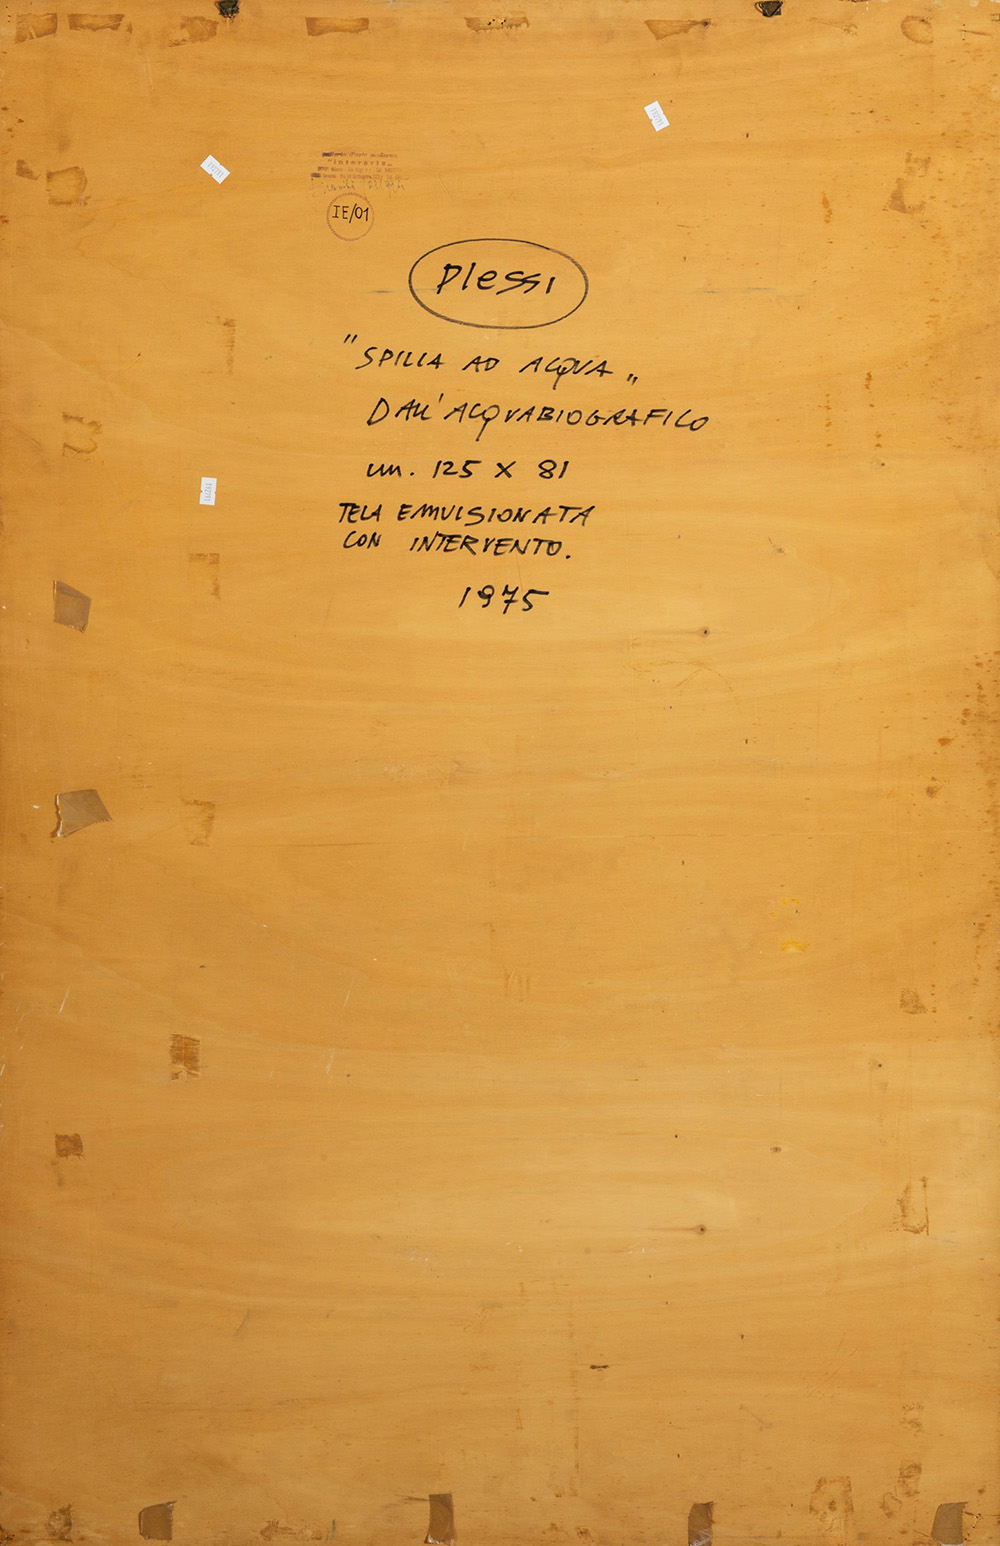 "interarte„
IE/01
Plessi
"SPILLA AD ACQUA„
DALL'ACQUABIOGRAFICO
cm. 125 X 81
TELA EMULSIONATA
CON INTERVENTO.
1975